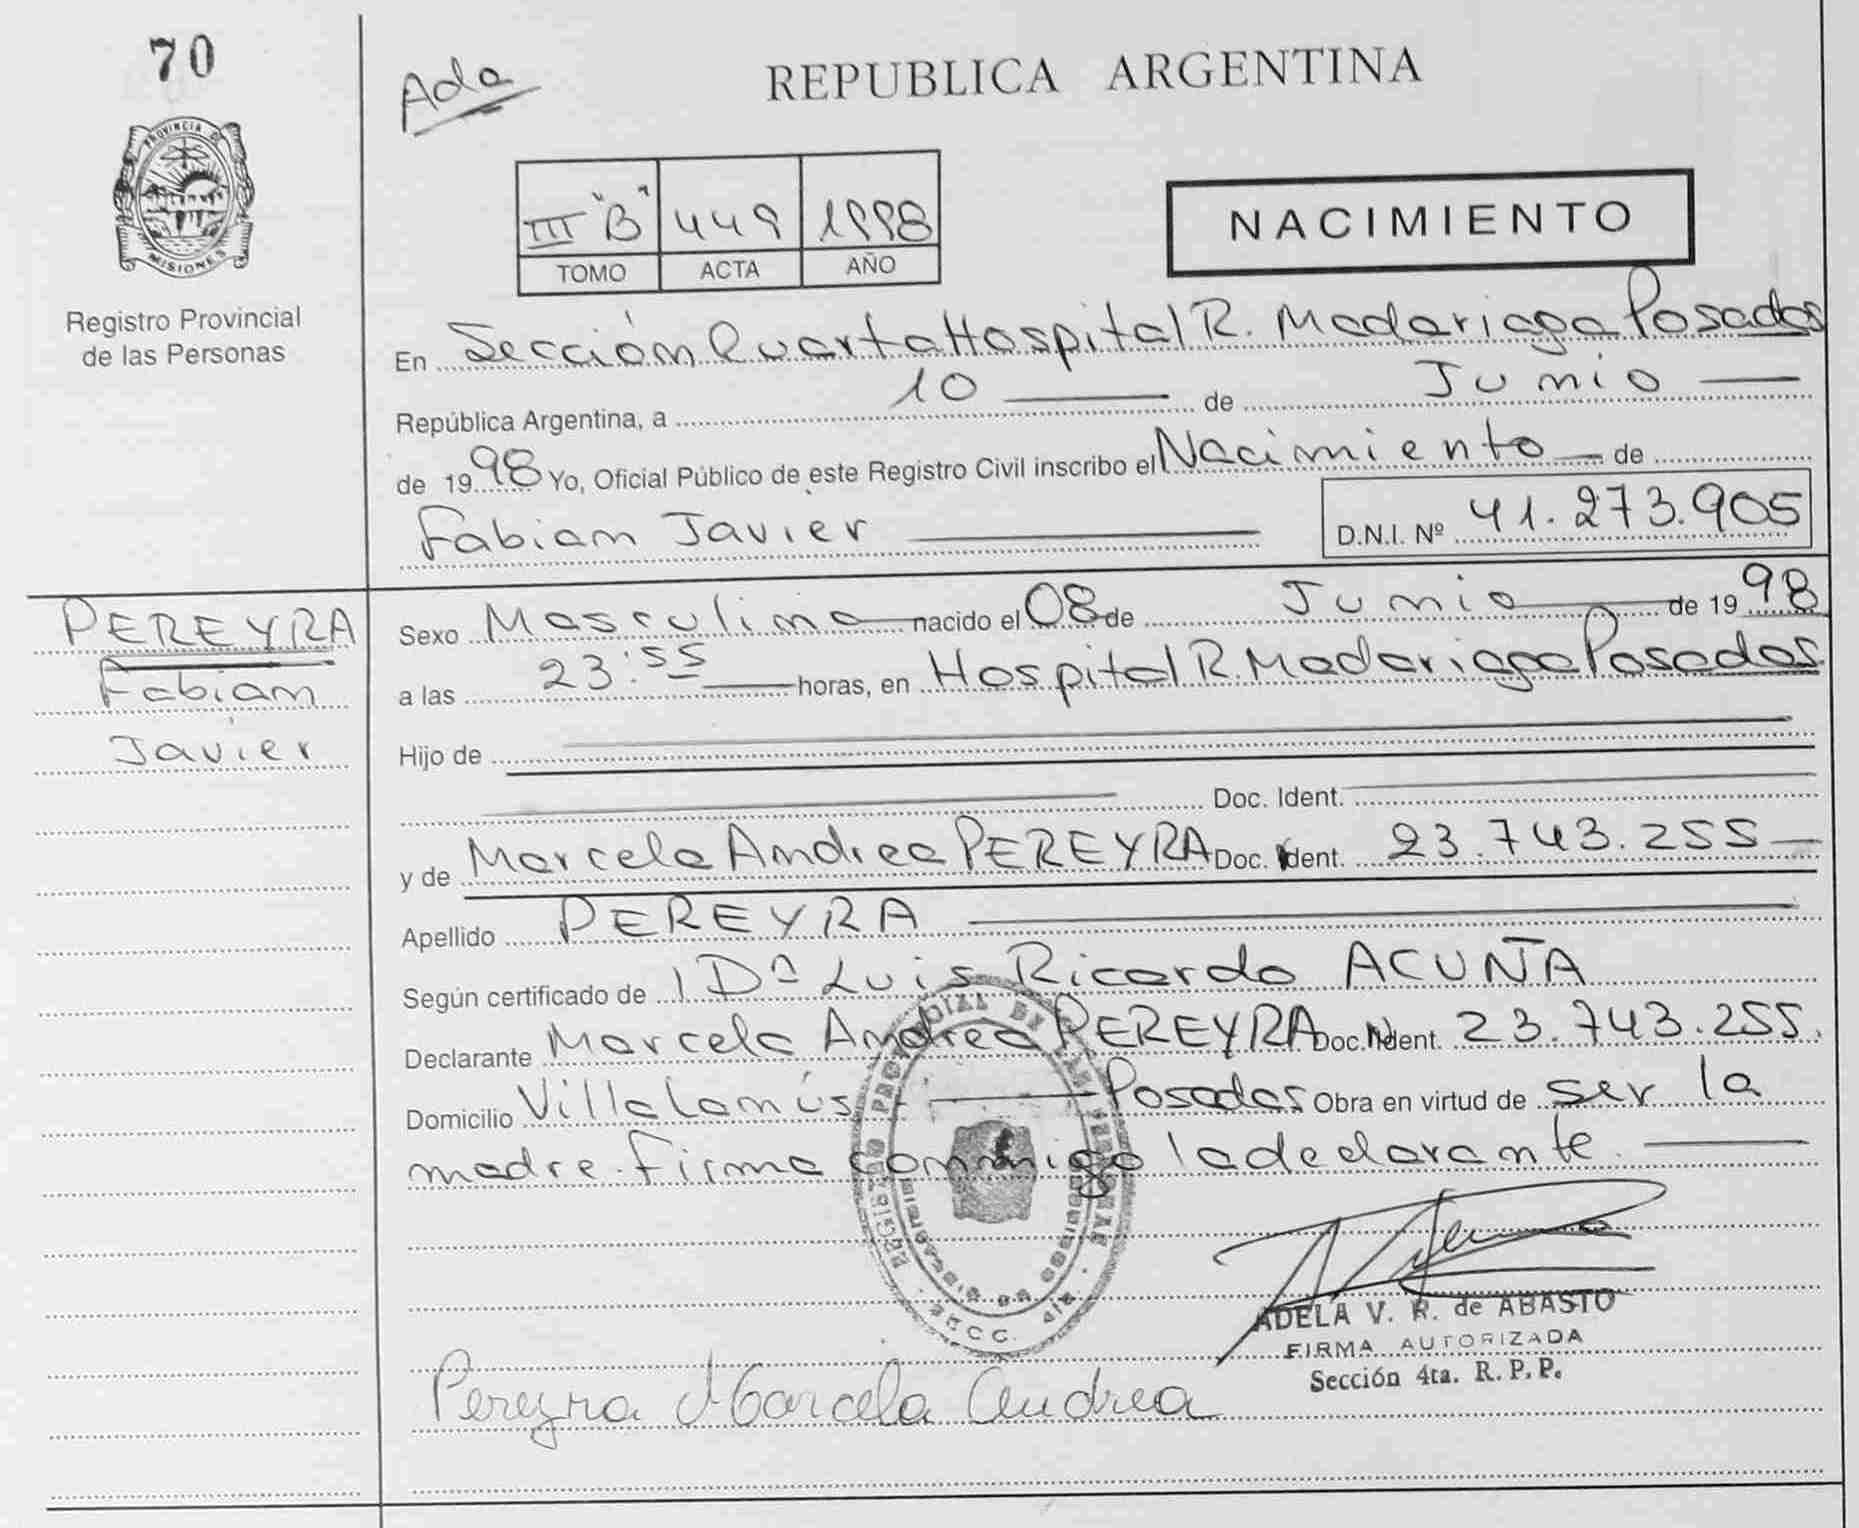 70
Ada
REPUBLICA ARGENTINA
PROVINCIA DE
MISIONES
Registro Provincial
de las Personas
III "B" 449 1998
TOMO ACTA AÑO
NACIMIENTO
En Sección Cuarta Hospital R. Madariaga Posadas
República Argentina, a 10 de Junio
de 1998 Yo, Oficial Público de este Registro Civil inscribo el Nacimiento de
Fabian Javier D.N.I. Nº 41.273.905
PEREYRA
Fabian
Javier
Sexo Masculino nacido el 08 de Junio de 1998
a las 23:55 horas, en Hospital R. Madariaga Posadas
Hijo de
Doc. Ident.
y de Marcela Andrea PEREYRA Doc. Ident. 23.743.255
Apellido PEREYRA
Según certificado de Dº Luis Ricardo ACUÑA
Declarante Marcela Andrea PEREYRA Doc. Ident. 23.743.255.
Domicilio Villalanús. Posadas Obra en virtud de ser la
madre. Firma conmigo la declarante.
ADELA V. R. de ABASTO
FIRMA AUTORIZADA
Sección 4ta. R.P.P.
Pereyra Marcela Andrea